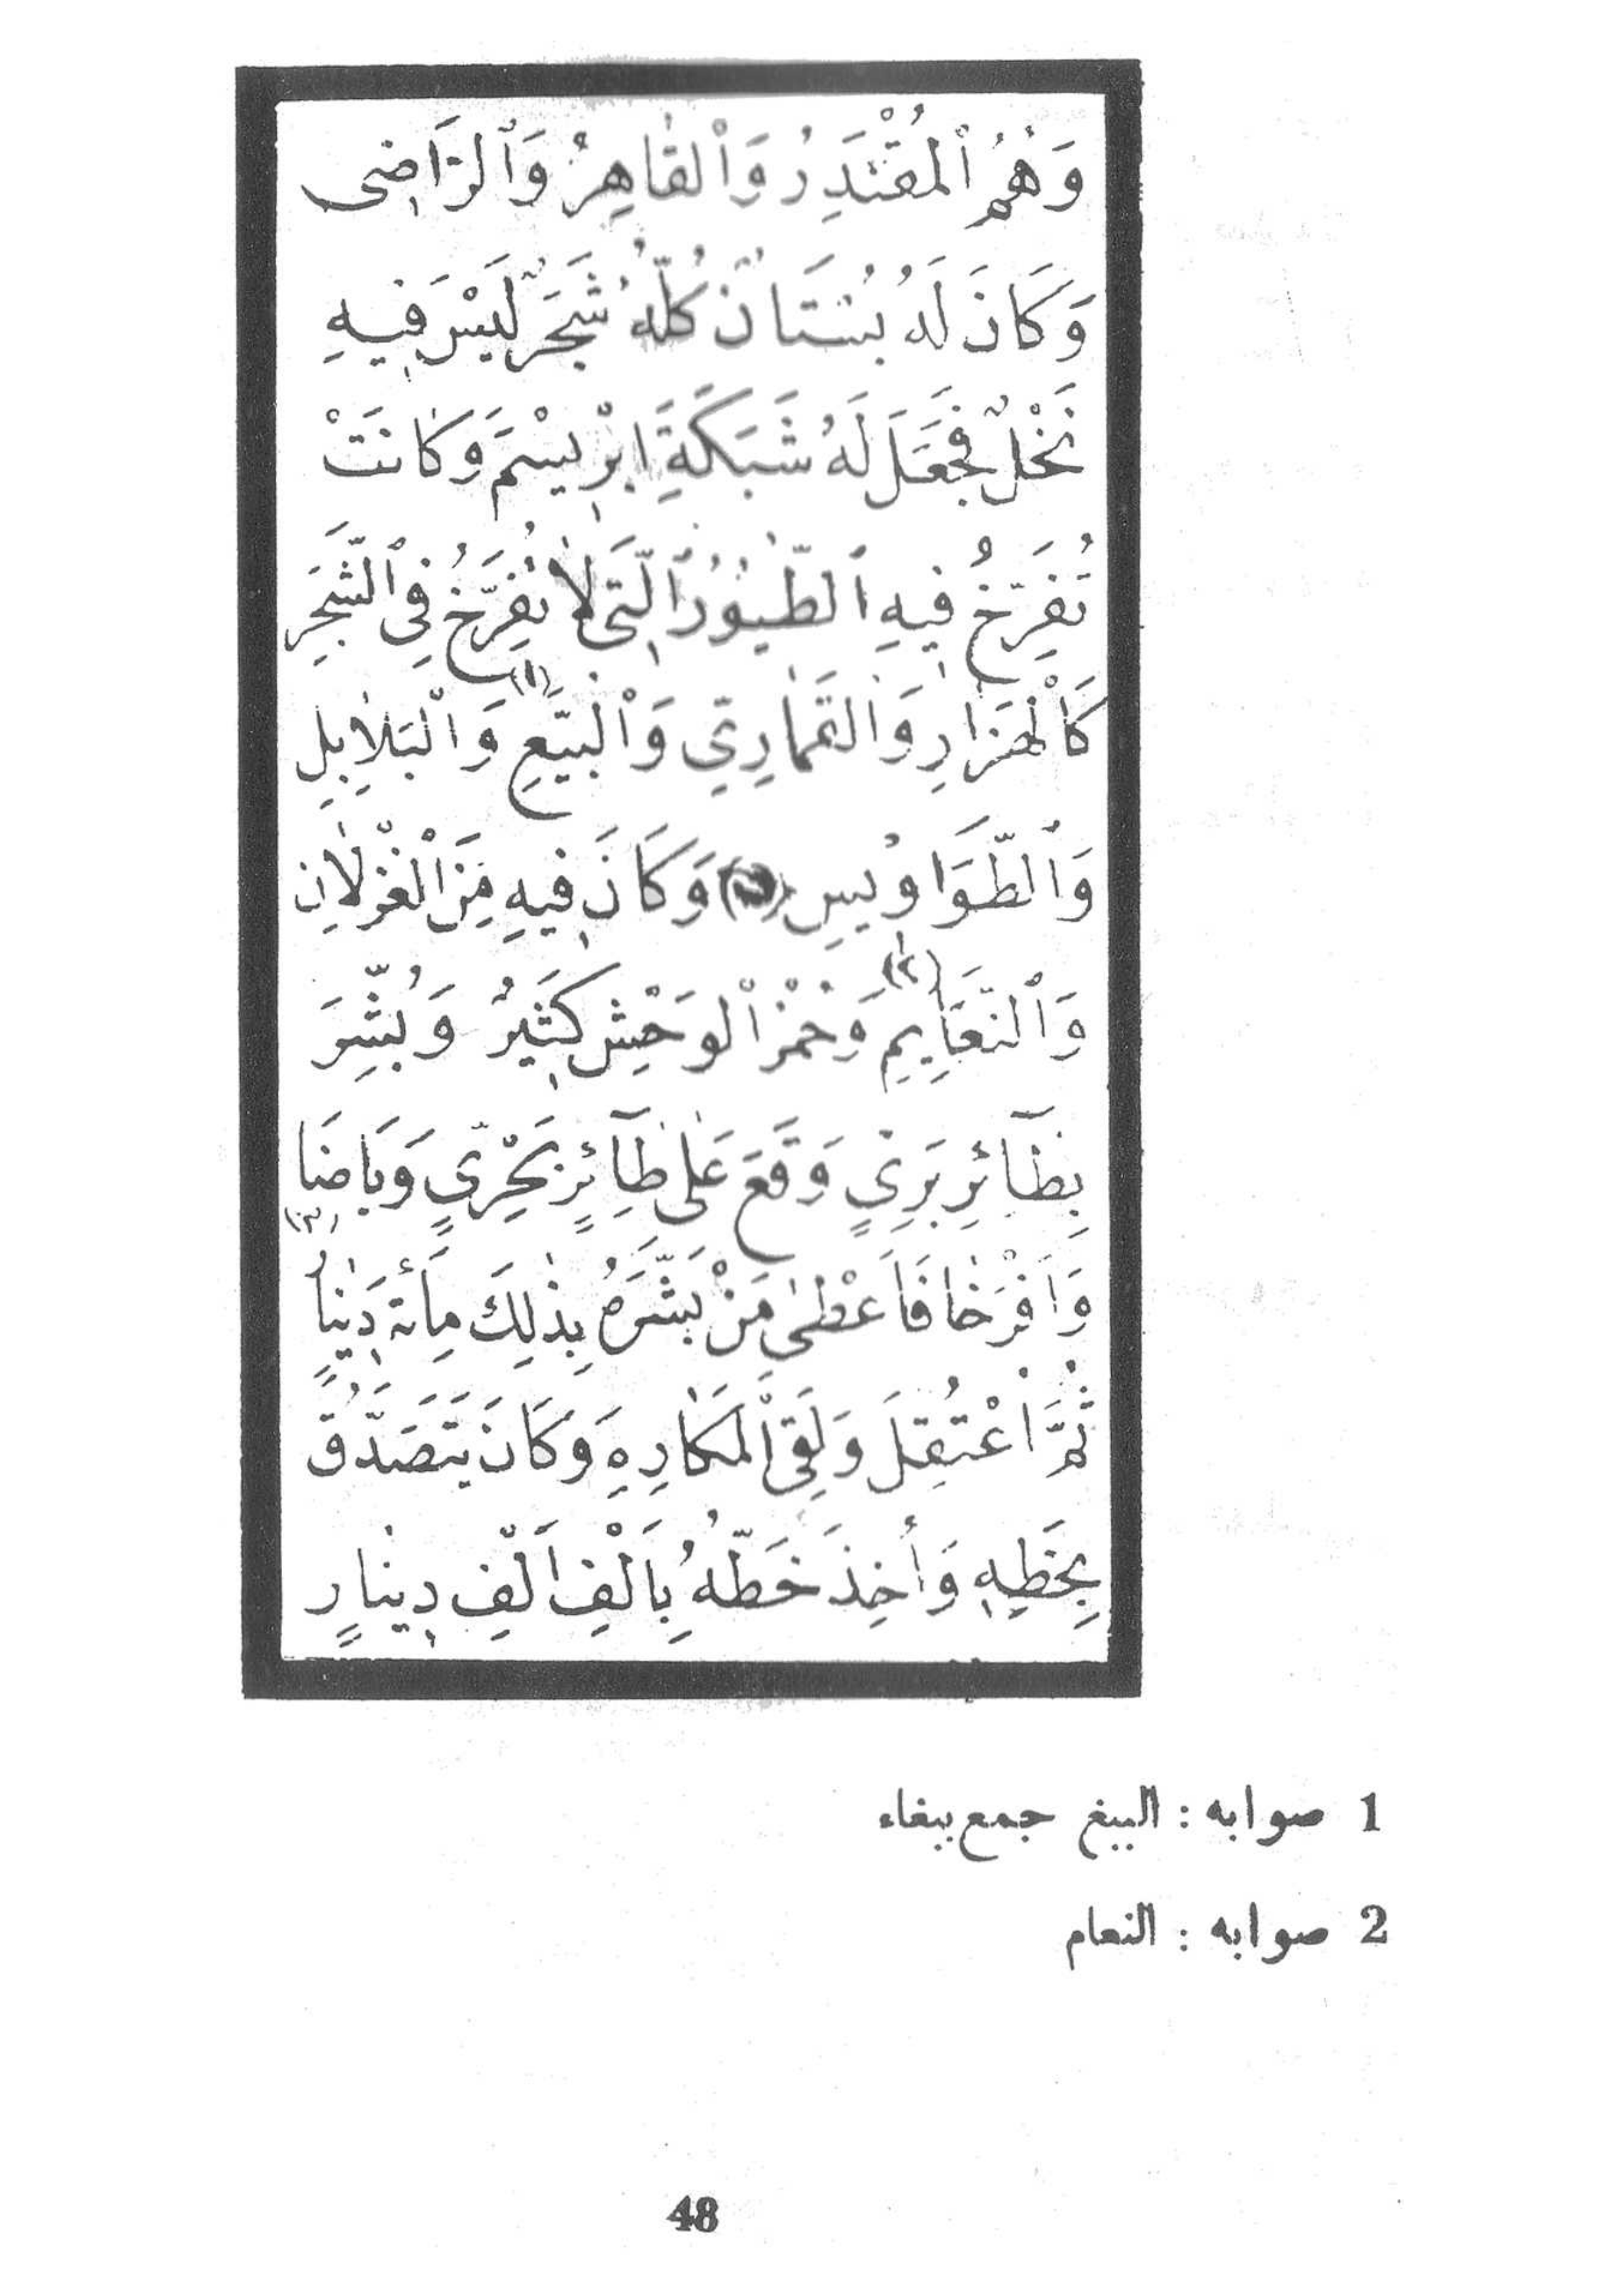 وَهُمُ ٱلْمُقْتَدِرُ وَٱلْقَاهِرُ وَٱلرَّاضِى
وَكَانَ لَهُ بُسْتَانٌ كُلُّهُ شَجَرٌ لَيْسَ فِيهِ
نَخْلٌ فَجَعَلَ لَهُ شَبَكَةَ اِبْرِيسْمَ وَكَانَتْ
تُفَرِّخُ فِيهِ ٱلطُّيُورُ ٱلَّتِى لَا تُفَرِّخُ فِى ٱلشَّجَرِ
كَٱلْهَزَارِ وَٱلْقَمَارِيِّ وَٱلْبَبَّعِ (١) وَٱلْبَلَابِلِ
وَٱلطَّوَاوِيسِ وَكَانَ فِيهِ مِنَ ٱلْغِزْلَانِ
وَٱلنَّعَايِمِ (٢) وَحُمُرِ ٱلْوَحْشِ كَثِيرٌ وَبُشِّرَ
بِطَآئِرٍ بَرِّيٍّ وَقَعَ عَلَى طَآئِرٍ بَحْرِيٍّ وَبَاضَا (٣)
وَاَفْرَخَا فَاَعْطَى مَنْ بَشَّرَهُ بِذٰلِكَ مِأَئَة دِينَارٍ
ثُمَّ ٱعْتُقِلَ وَلَقِىَ ٱلْمَكَارِهِ وَكَانَ يَتَصَدَّقُ
بِخَطِّهِ وَأُخِذَ خَطُّهُ بِاَلْفِ اَلْفِ دِينَارٍ
1 صوابه : الببغ جمع ببغاء
2 صوابه : النعام
48